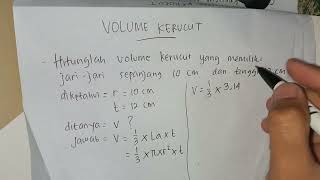 VOLUME KERUCUT
- Hitunglah volume kerucut yang memiliki
jari-jari sepanjang 10 cm dan tinggi cm
diketahui = r = 10 cm
t = 12 cm
ditanya = V ?
Jawab = V = 1/3 x La x t
= 1/3 x πxr² x t
V = 1/3 x 3,14